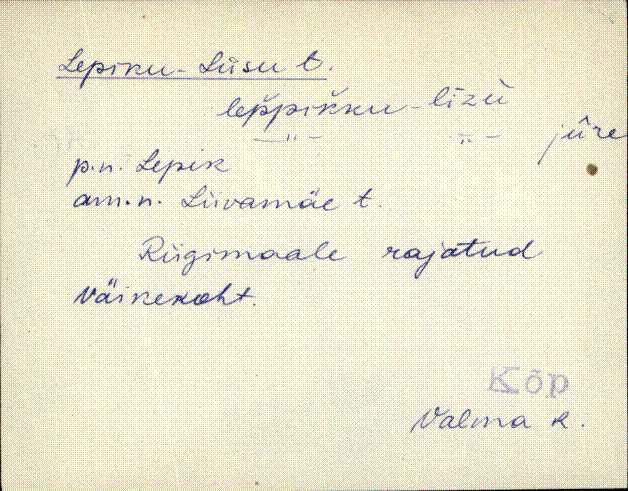 Lepiku-Liisu t.
lep̌pik̆ku-līzū
— " — — " — jūre
p.n. Lepik
am.n. Liivamäe t.
Riigimaale rajatud
väikekoht.
Kõp
Valma k.